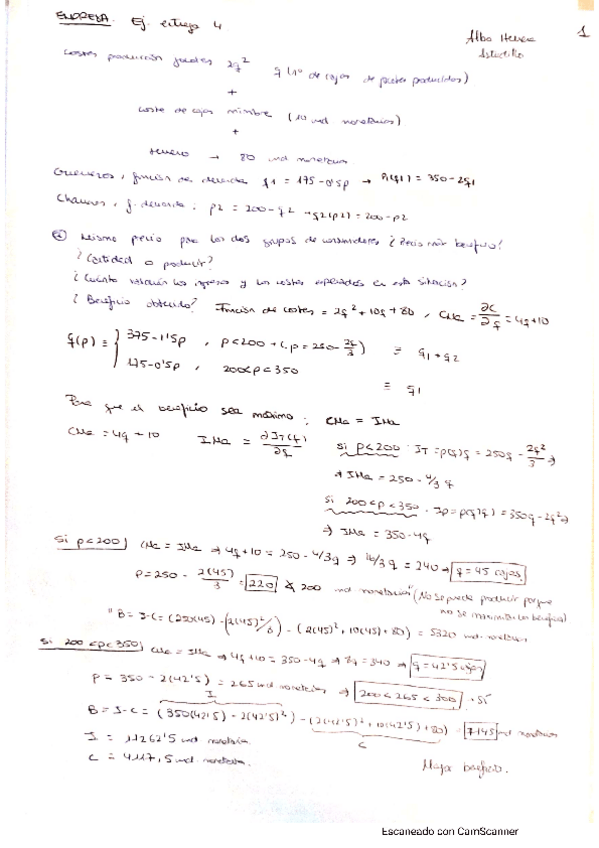 EMPRESA. Ej. entrega 4
1
Costes producción 2q²
+
coste de cajas mimbre (10 mil monetarios)
+
→ 80 mil monetarios
, función de demanda q1 = 175-0'5p → P(q1) = 350-2q1
, f. demanda: p2 = 200-q2 → q2(p2) = 200-p2
a) Mismo precio para los dos grupos de consumidores ¿Precio beneficio?
¿Cantidad a producir?
¿Cuánto los ingresos y los costes en esta situación?
¿Beneficio obtenido? Función de costes = 2q²+10q+80, CMa = ∂C/∂q = 4q+10
q(p) = { 375-1'5p , p<200 (p = 250-2q/3) ≡ q1+q2
175-0'5p , 200<p<350 ≡ q1
Para que el beneficio sea máximo: CMa = IMa
CMa = 4q+10 IMa = ∂IT(q)/∂q si p<200 IT = p(q)q = 250q - 2q²/3 ⇒
⇒ IMa = 250-4/3 q
si 200<p<350 = 350q-2q² ⇒
⇒ IMa = 350-4q
Si p<200) CMa = IMa ⇒ 4q+10 = 250-4/3q ⇒ 16/3 q = 240 ⇒ q = 45 cajas
p = 250 - 2(45)/3 = 220 200 mil monetarios (No se puede producir porque
no se el beneficio)
- (2(45)²+10(45)+80) = 5320 mil monetarios
Si 200<p<350) CMa = IMa ⇒ 4q+10 = 350-4q ⇒ 8q = 340 ⇒ q = 42'5 cajas
P = 350-2(42'5) = 265 mil monetarios ⇒ 200<265<300 . Sí
B = I-C = (350(42'5) - 2(42'5)²) - (2(42'5)²+10(42'5)+80) = 7145 mil monetarios
I
C
I = 11262'5 mil monetarios.
C = 4117,5 mil monetarios.
Mayor beneficio.
Escaneado con CamScanner